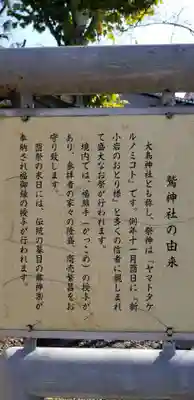 鷲神社の由来
大鳥神社とも称し、祭神は「ヤマトタケ
ルノミコト」です。例年十一月酉日に「新
小岩のおとり様」と多くの信者に親しまれ
て盛大なお祭が行われます。
境内では、福熊手「かっこめ」の授与が
あり、参拝者の家々の隆盛、商売繁昌をお
守り致します。
酉祭の末日には、伝統の葛目の舞神楽が
奉納され福御縁の授与が行われます。